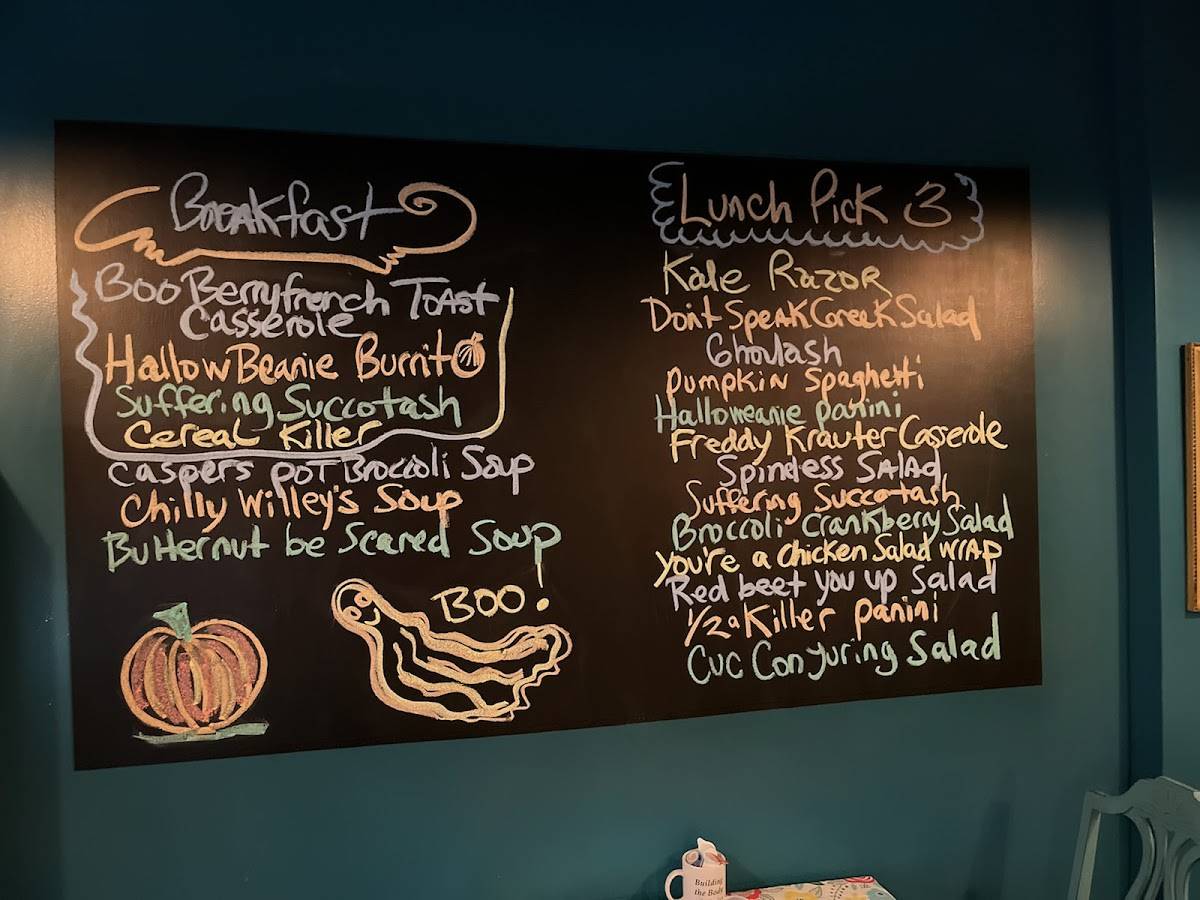 Breakfast
Boo Berry french Toast
Casserole
Hallow Beanie Burrito
Suffering Succotash
Cereal Killer
Caspers pot Broccoli Soup
Chilly Willey's Soup
Butternut be Scared Soup
BOO!
Lunch Pick 3
Kale Razor
Don't Speak Greek Salad
Ghoulash
Pumpkin Spaghetti
Halloweanie panini
Freddy Krauter Casserole
Spineless Salad
Suffering Succotash
Broccoli Crankberry Salad
You're a chicken Salad wrap
Red beet you up Salad
1/2 a Killer panini
Cuc Conjuring Salad
Building
the Body